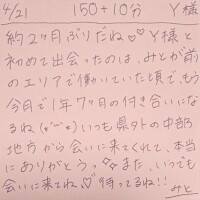 4/21 150+10分 Y様
約2ヶ月ぶりだね♡♡Y様と
初めて出会ったのは、みとが前
のエリアで働いていた頃で、もう
今月で1年7ヶ月の付き合いにな
るね(*˘︶˘*)いつも県外の中部
地方から会いに来てくれて、本当
にありがとう。また、いつでも
会いに来てね♡待ってるね!!
みと